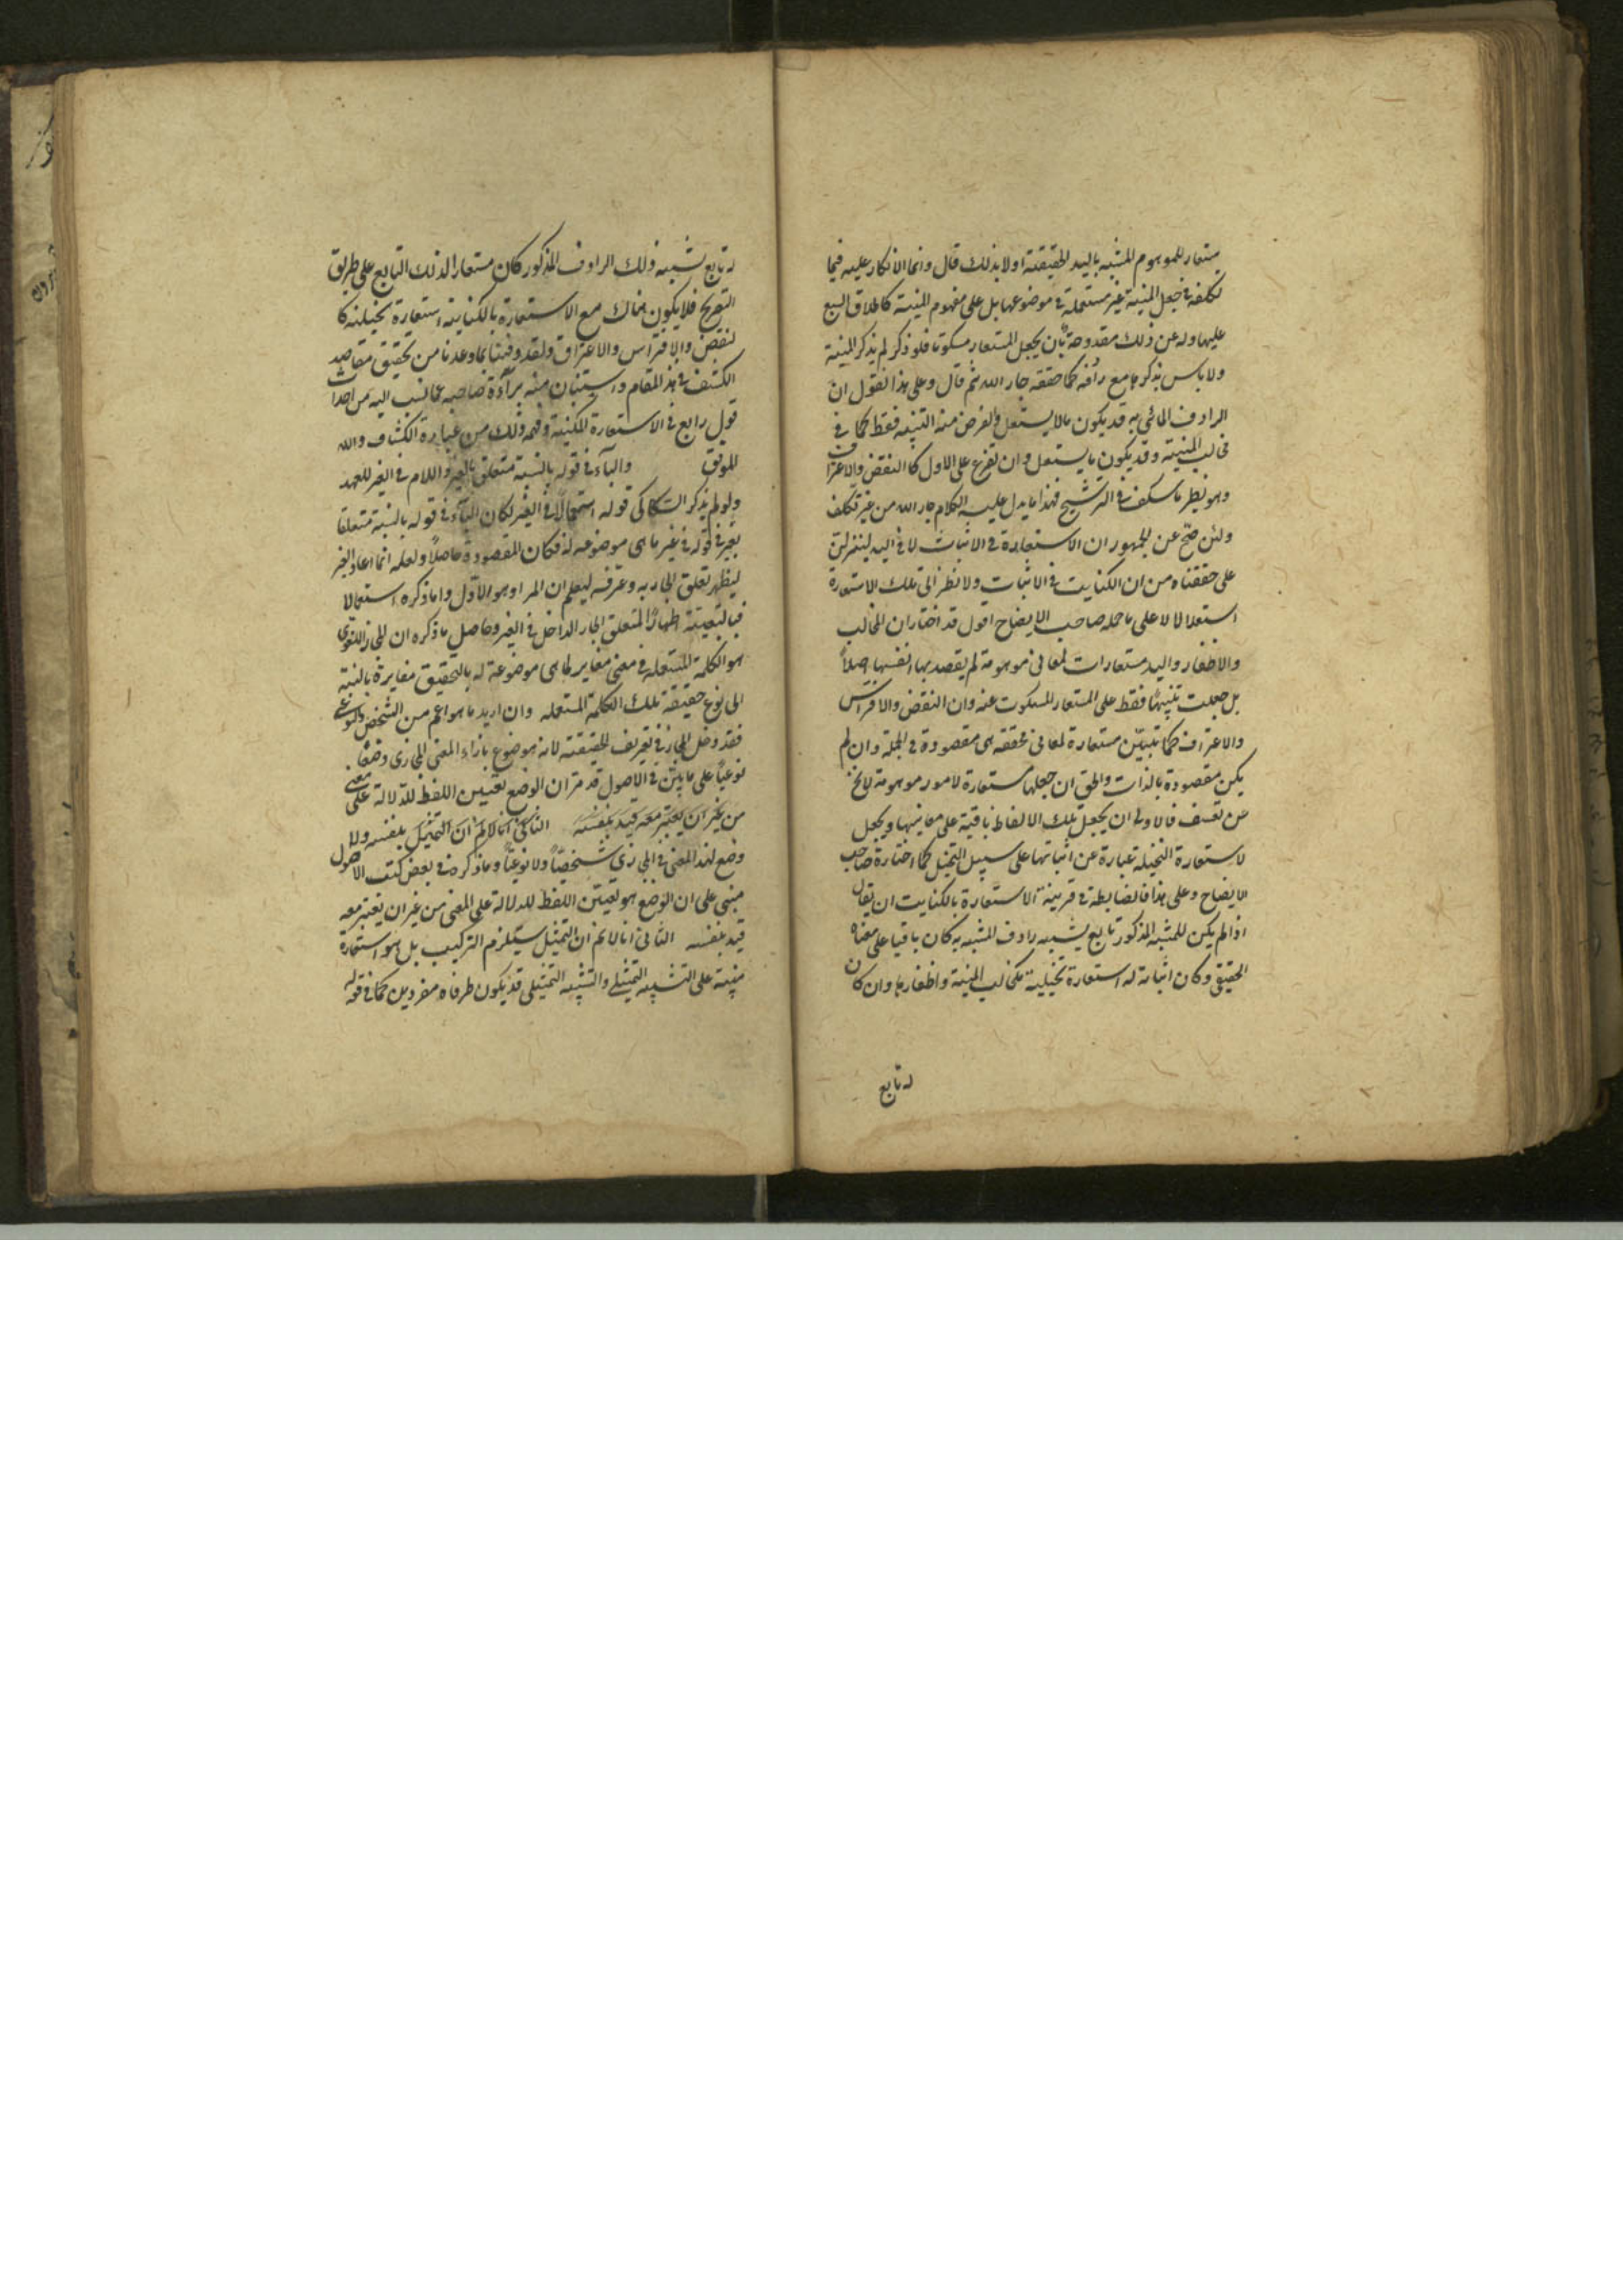 مستعار للموهوم المشبه باليد الحقيقة اولا بذلك قال وانما الانكار عليه فيما
تكلفه في جعل المنية غير مستعملة في موضوعها بل على مفهوم المنية كاطلاق السبع
عليها وله عن ذلك مندوحة بان يجعل المستعار مسكوتا فلو ذكر لم يذكر المنية
ولا باس بذكرها مع رادفه كما حققه جار الله ثم قال وعلى هذا نقول ان
الرادف المأتي به قد يكون ما لا يستقل والغرض منه التنبيه فقط كما في
مخالب المنية وقد يكون ما يستقل وان تفرع على الاول كالنقض والاغتراف
وهو نظير ما سلف في الترشيح فهذا ما يدل عليه الكلام جار الله من غير تكلف
ولئن صح عن الجمهور ان الاستعارة في الاثبات لا في اليد لينزلن
على حققناه من ان الكناية في الاثبات ولا نظر الى تلك الاستعارة
استقلالا لا على ما حمله صاحب الايضاح اقول قد اختار ان المخالب
والاظفار واليد مستعارات لمعاني موهومة لم يقصد بها انفسها اصلاً
بل جعلت تنبيهًا فقط على المستعار المسكوت عنه وان النقض والافتراس
والاغتراف كما تبين مستعارة لمعاني محققه هي مقصودة في الجملة وان لم
يكن مقصودة بالذات والحق ان جعلها مستعارة لامور موهومة لا يخ
من تعسف فالاولى ان يجعل تلك الالفاظ باقية على معانيها ويجعل
الاستعارة التخيلية عبارة عن اثباتها على سبيل التخيل كما اختاره صاحب
الايضاح وعلى هذا فالضابطة في قرينة الاستعارة بالكناية ان يقال
اذا لم يكن للمشبه المذكور تابع يشبه رادف المشبه به كان باقيا على معناه
الحقيقي وكان اثباته له استعارة تخييلية كمخالب المنية واظفارها وان كان
له تابع
له تابع يشبه ذلك الرادف المذكور كان مستعارا لذلك التابع على طريق
التصريح فلا يكون هناك مع الاستعارة بالكناية استعارة تخييلية كا
لنقض والافتراس والاغتراف ولقد وفينا بما وعدنا من تحقيق مقاصد
الكشف في هذا المقام واستبان منه برآءة صاحبه عما نسب اليه من احداث
قول رابع في الاستعارة المكنية وفهمه ذلك من عبارة الكشاف والله
الموفق والبآء في قوله بالنسبة متعلق بالغير واللام في الغير للعهد
ولو لم يذكر السكاكي قوله استعمالًا في الغير لكان البآء في قوله بالنسبة متعلقا
بغير في قوله في غير ما هي موضوعه له فكان المقصود حاصلًا ولعله انما اعاد الغير
ليظهر تعلق الجار به وعرفه ليعلم ان المراد هو الاول واما ذكره استعمالا
فبالتبعية اظهارًا لمتعلق الجار الداخل في الغير وحاصل ما ذكره ان المجاز اللغوي
هو الكلمة المستعملة في معنى مغاير لما هي موضوعة له بالتحقيق مغايرة بالنسبة
الى نوع حقيقة تلك الكلمة المستعمله وان اريد ما هو اعم من الشخصي والنوعي
فقد دخل المجاز في تعريف الحقيقة لانه موضوع بازاء المعنى المجازي وضعًا
نوعيًا على ما بين في الاصول قد مر ان الوضع تعيين اللفظ للدلالة على معنى
من غير ان يعتبر معه قيد بنفسه الثاني انا لا نم ان التمثيل بنفسه ولا
وضع لهذا المعنى المجازي شخصيًا ولا نوعيًا وما ذكره في بعض كتب الاصول
مبني على ان الوضع هو تعيين اللفظ للدلالة على المعنى من غير ان يعتبر معه
قيد بنفسه الثاني انا لا نم ان التمثيل يستلزم التركيب بل هو استعارة
مبنية على التشبيه التمثيلي والتشبيه التمثيلي قد يكون طرفاه مفردين كما في قوله